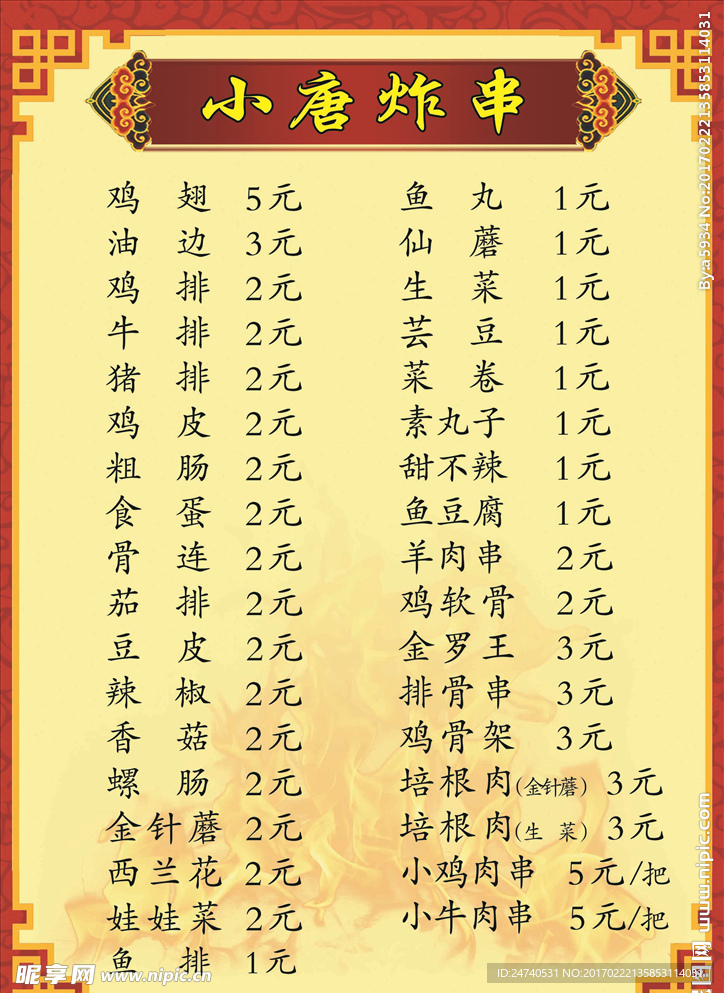 小唐炸串
鸡翅 5元
油边 3元
鸡排 2元
牛排 2元
猪排 2元
鸡皮 2元
粗肠 2元
食蛋 2元
骨连 2元
茄排 2元
豆皮 2元
辣椒 2元
香菇 2元
螺肠 2元
金针蘑 2元
西兰花 2元
娃娃菜 2元
鱼排 1元
鱼丸 1元
仙蘑 1元
生菜 1元
芸豆 1元
菜卷 1元
素丸子 1元
甜不辣 1元
鱼豆腐 1元
羊肉串 2元
鸡软骨 2元
金罗王 3元
排骨串 3元
鸡骨架 3元
培根肉(金针蘑) 3元
培根肉(生菜) 3元
小鸡肉串 5元/把
小牛肉串 5元/把
By:a5934 No:20170222135853114031
昵图网 www.nipic.com
昵享网 www.nipic.cn
ID:24740531 NO:20170222135853114031